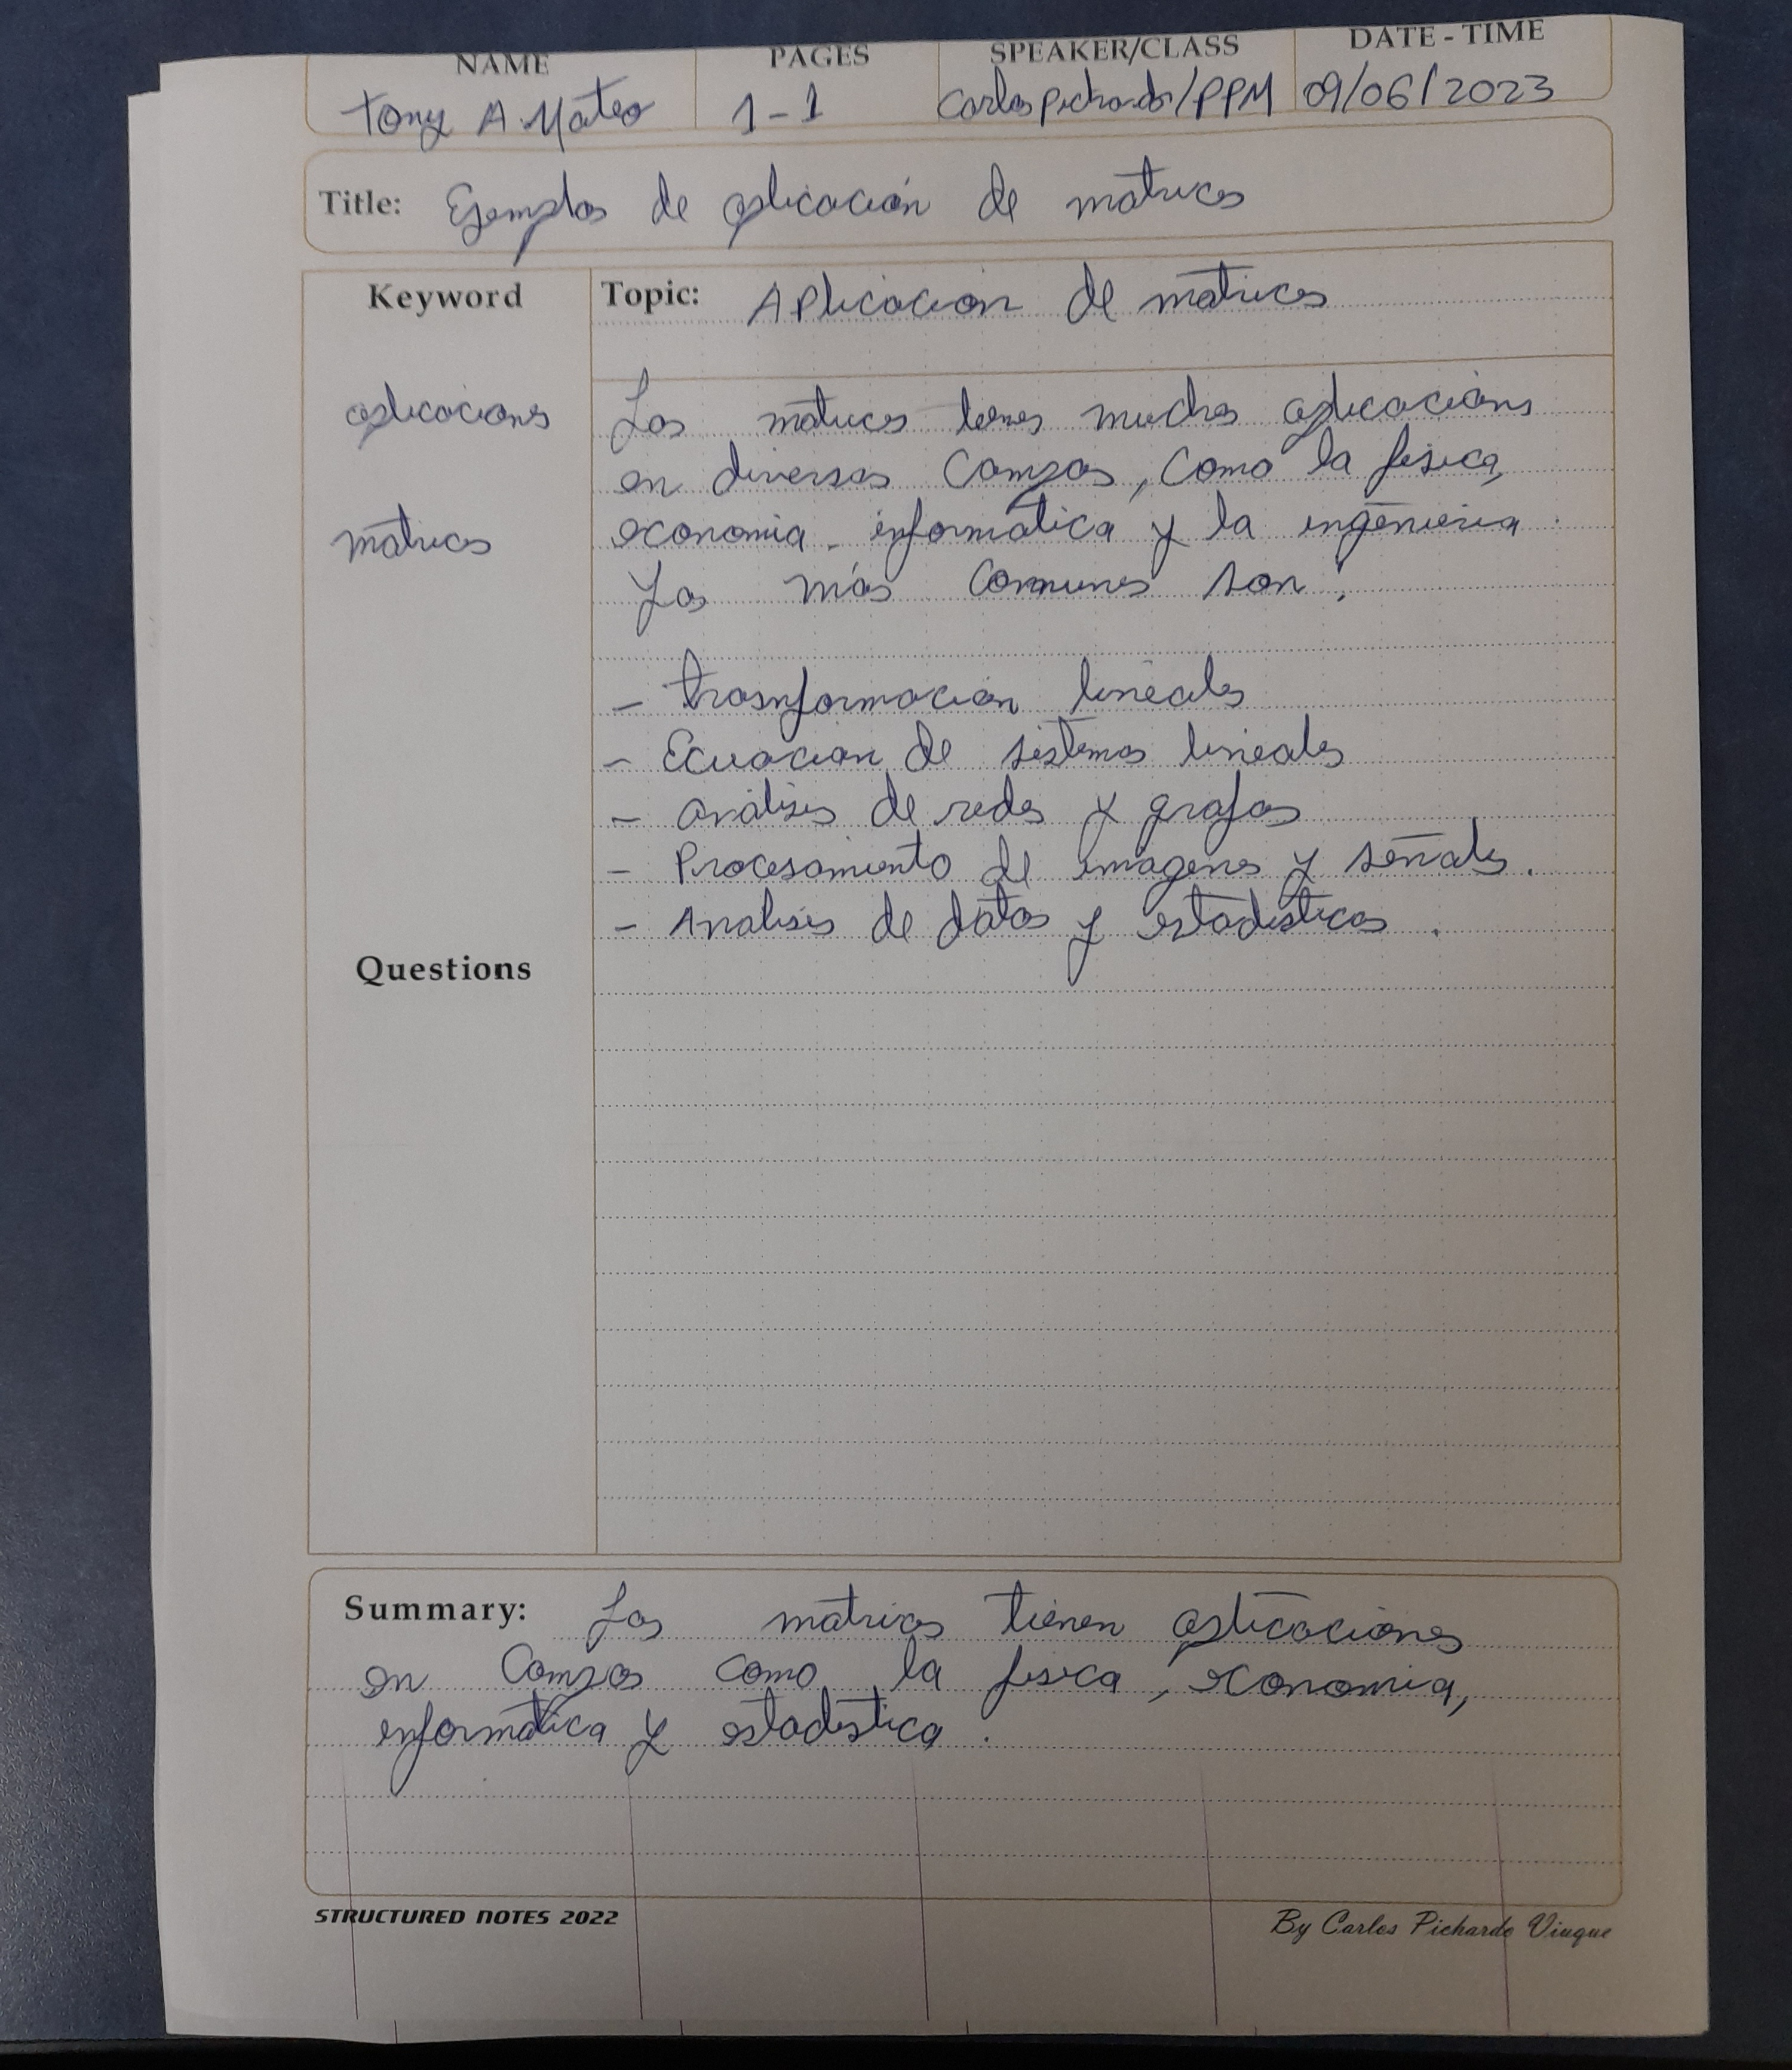 NAME PAGES SPEAKER/CLASS DATE - TIME
Tony A. Mateo 1-1 Carlos Pichardo/PPM 09/06/2023
Title: Ejemplos de aplicación de matrices
Keyword
Topic: Aplicacion de matrices
aplicaciones
matrices
Las matrices tienes muchas aplicacions
en diversos Campos, Como la fisica,
economia. informática y la ingenieria.
Las más Comunes son:
- trasnformacion lineales
- Ecuacion de sistemas lineales
- análisis de redes y grafos
- Procesamiento de imagenes y señales.
- Analisis de datos y estadisticas.
Questions
Summary: Las matrices tienen aplicaciones
en Campos como la fisica, economia,
informática y estadistica.
STRUCTURED NOTES 2022
By Carlos Pichardo Viuque